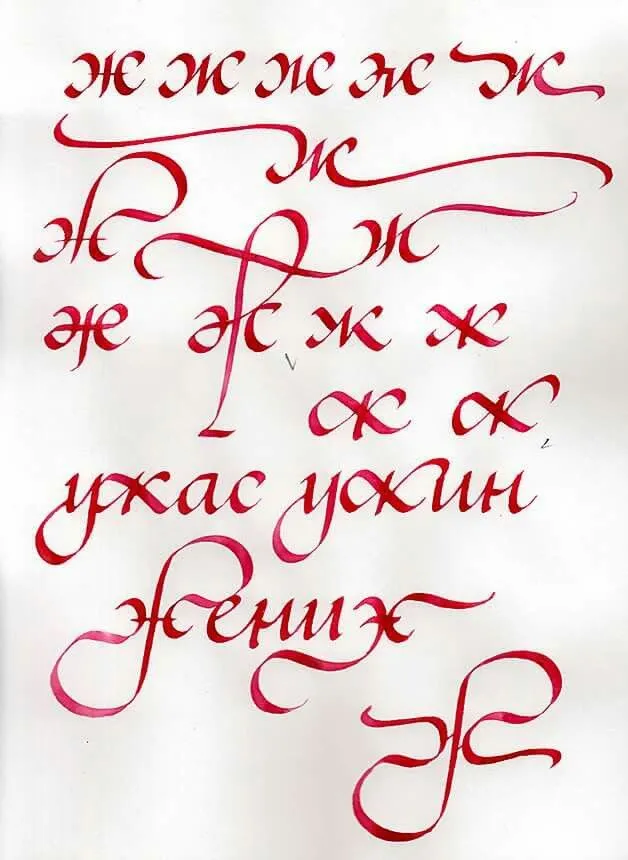 ж ж ж ж ж
ж
ж ж
ж ж ж ж
ж ж
ужас ужин
жених
ж